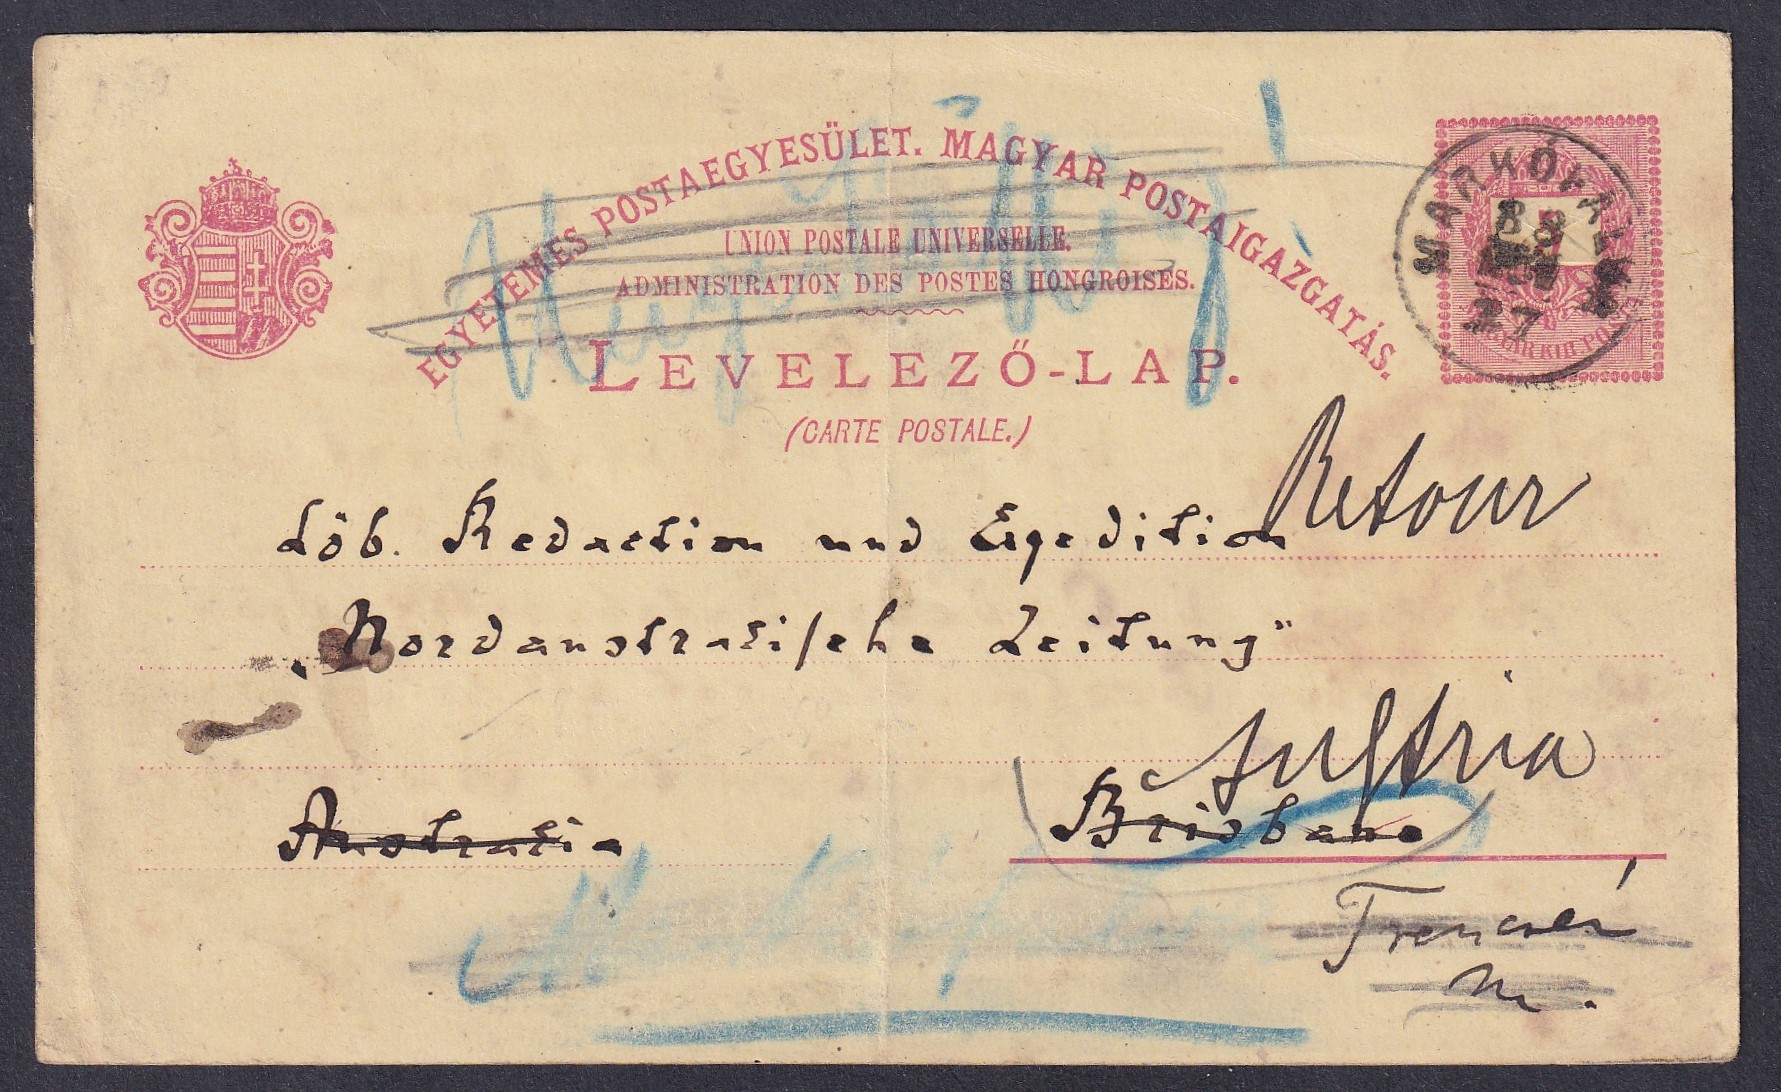 EGYETEMES POSTAEGYESÜLET. MAGYAR POSTAIGAZGATÁS.
UNION POSTALE UNIVERSELLE.
ADMINISTRATION DES POSTES HONGROISES.
LEVELEZŐ-LAP.
(CARTE POSTALE.)
88
27
5
Retour
Löb. Redaction und Expedition
„Nordaustralische Zeitung"
Austria
Australia
Brisbane
Trencsén
m.